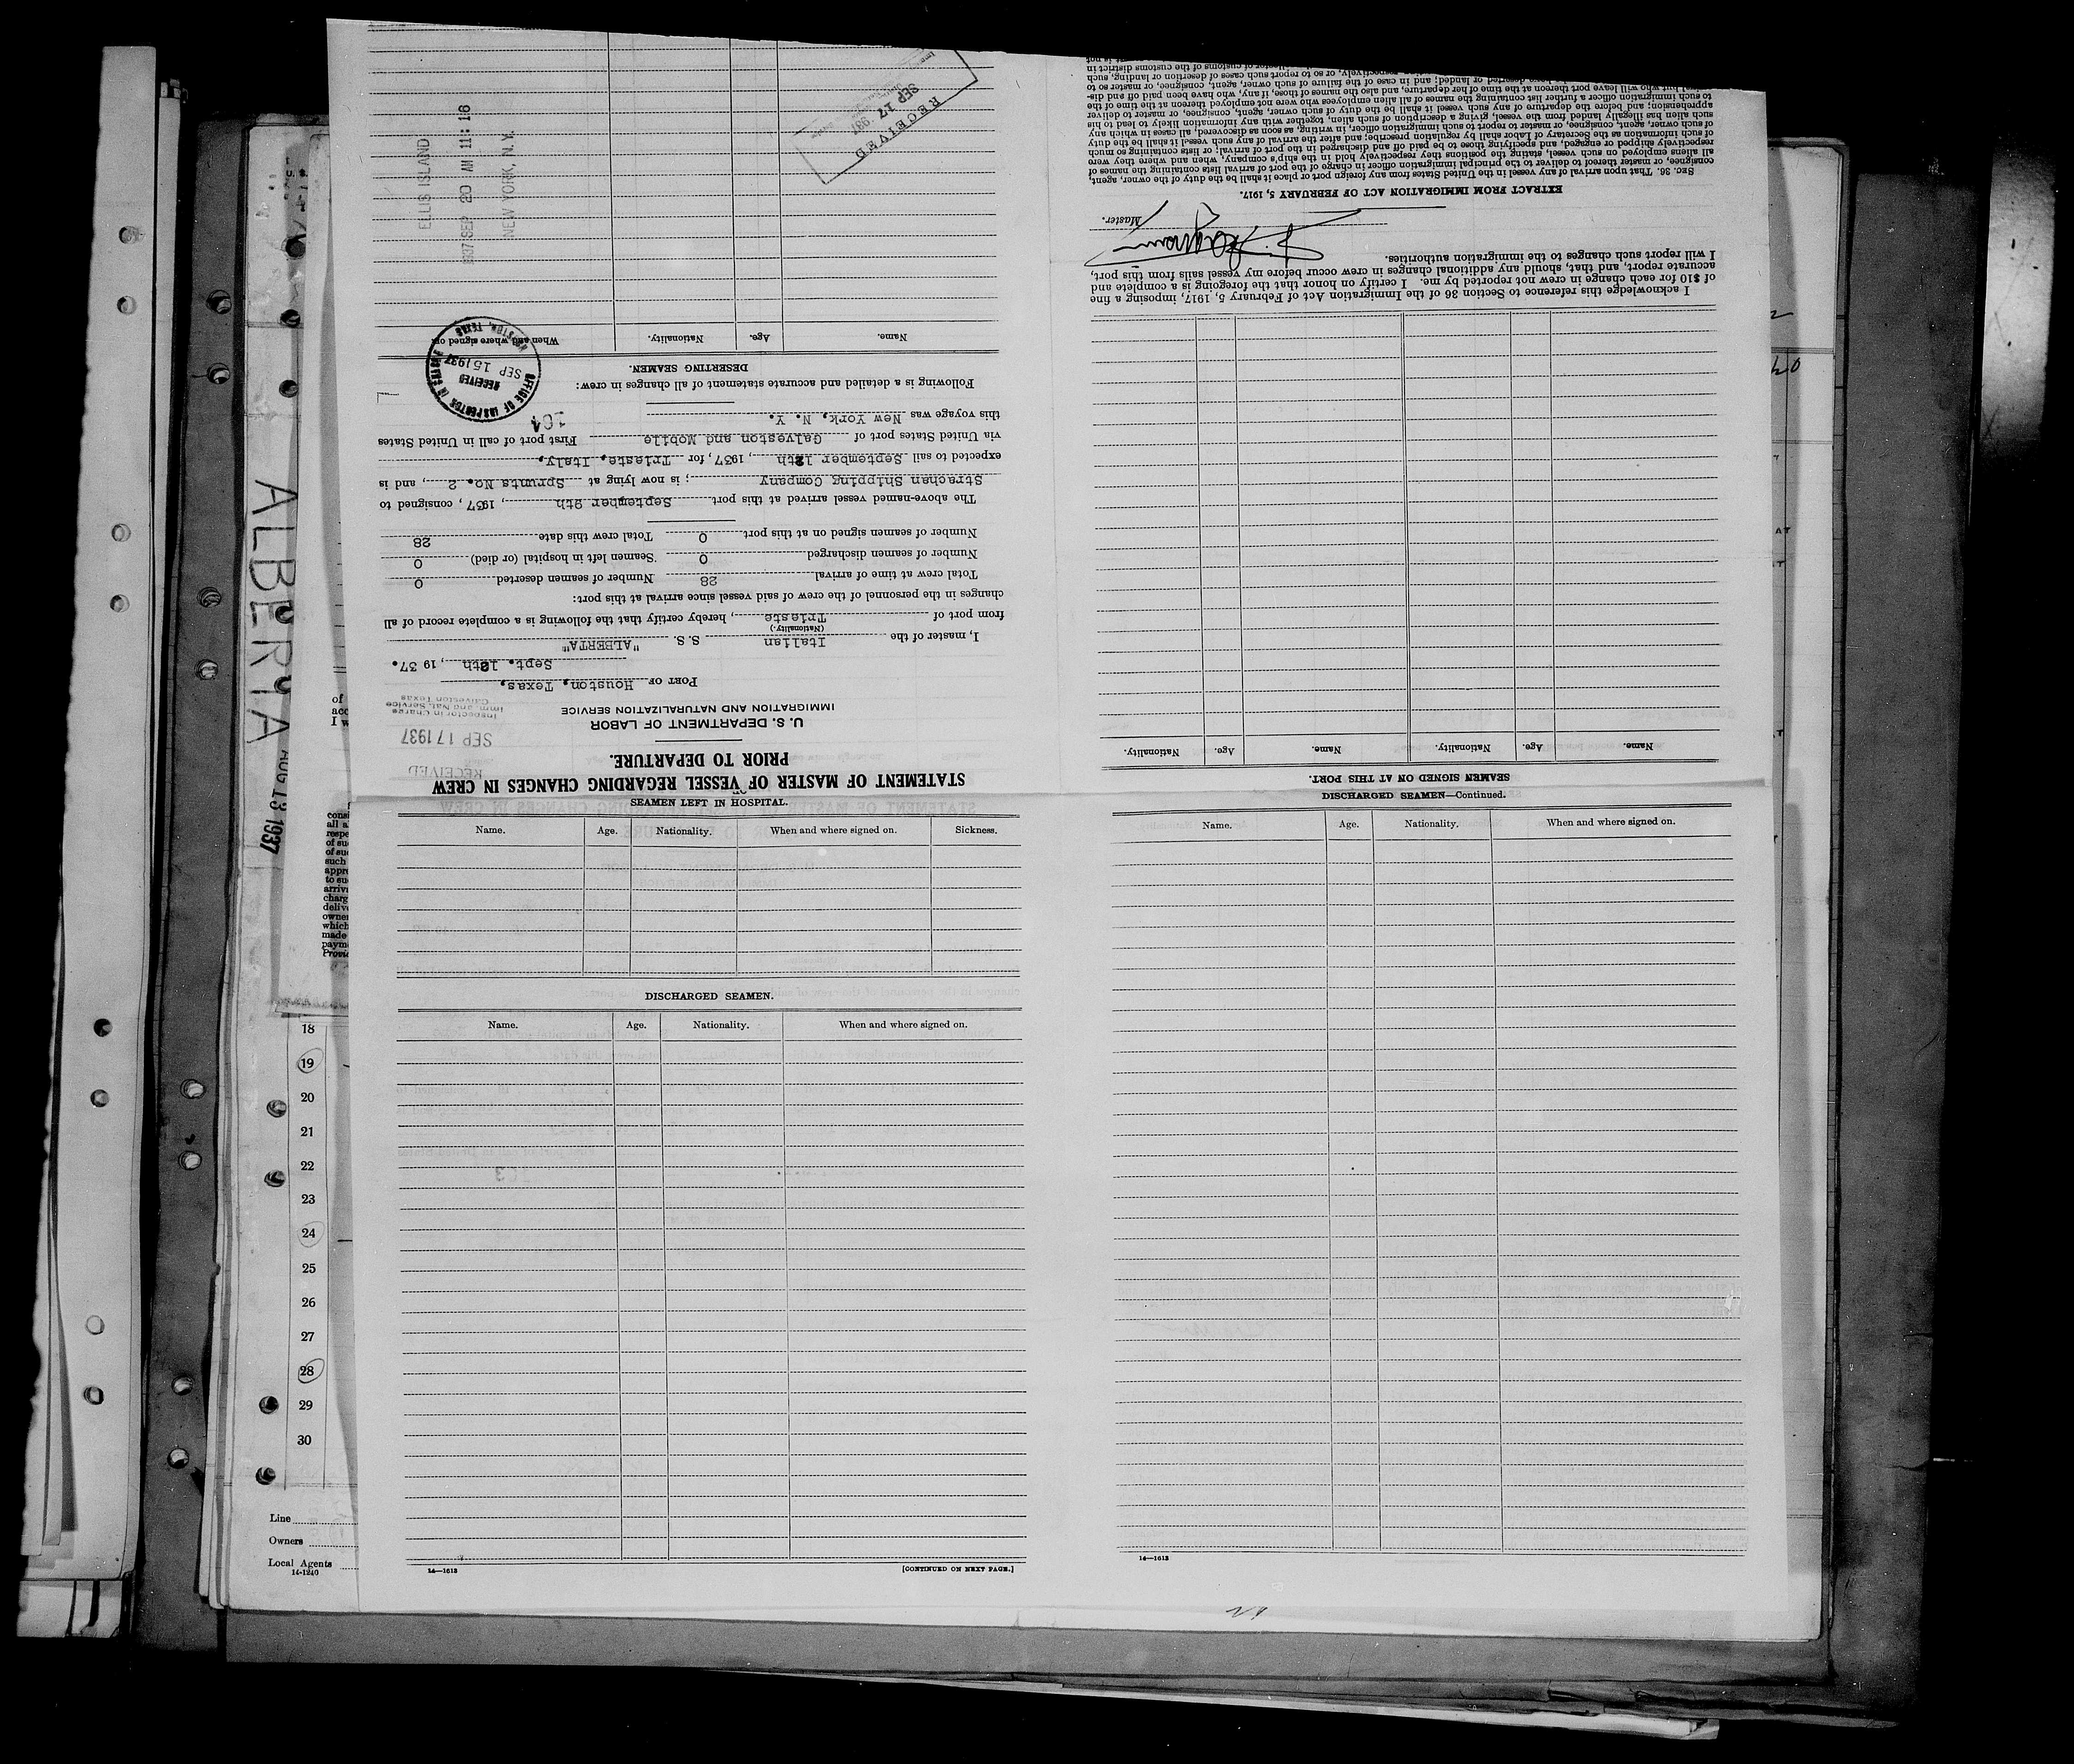 STATEMENT OF MASTER OF VESSEL REGARDING CHANGES IN CREW
PRIOR TO DEPARTURE.
RECEIVED
SEP 17 1937
Inspector in Charge
Imm. and Nat. Service
Galveston Texas
U. S. DEPARTMENT OF LABOR
IMMIGRATION AND NATURALIZATION SERVICE
PORT OF Houston, Texas,
Sept. 12th, 1937.
I, master of the Italian S.S. "ALBERTA"
(Nationality.)
from port of Trieste, hereby certify that the following is a complete record of all
changes in the personnel of the crew of said vessel since arrival at this port:
Total crew at time of arrival 28 Number of seamen deserted 0
Number of seamen discharged 0 Seamen left in hospital (or died) 0
Number of seamen signed on at this port 0 Total crew this date 28
The above-named vessel arrived at this port September 9th, 1937, consigned to
Strachan Shipping Company; is now lying at Sprunts No. 2, and is
expected to sail September 12th, 1937, for Trieste, Italy,
via United States port of Galveston and Mobile First port of call in United States
this voyage was New York, N. Y.
104
Following is a detailed and accurate statement of all changes in crew:
DESERTING SEAMEN.
Name. Age. Nationality. When and where signed on.
OFFICE OF INSPECTOR IN CHARGE
RECEIVED
SEP 15 1937
RECEIVED
SEP 17 1937
ELLIS ISLAND
1937 SEP 20 AM 11:16
NEW YORK, N.Y.
SEAMEN SIGNED ON AT THIS PORT.
Name. Age. Nationality. Name. Age. Nationality.
I acknowledge this reference to Section 36 of the Immigration Act of February 5, 1917, imposing a fine
of $10 for each change in crew not reported by me. I certify on honor that the foregoing is a complete and
accurate report, and that, should any additional changes in crew occur before my vessel sails from this port,
I will report such changes to the immigration authorities.
Master.
EXTRACT FROM IMMIGRATION ACT OF FEBRUARY 5, 1917.
SEC. 36. That upon arrival of any vessel in the United States from any foreign port or place it shall be the duty of the owner, agent,
consignee, or master thereof to deliver to the principal immigration officer in charge of the port of arrival lists containing the names of
all aliens employed on such vessel, stating the positions they respectively hold in the ship's company, when and where they were
respectively shipped or engaged, and specifying those to be paid off and discharged in the port of arrival; or lists containing so much
of such information as the Secretary of Labor shall by regulation prescribe; and after the arrival of any such vessel it shall be the duty
of such owner, agent, consignee, or master to report to such immigration officer, in writing, as soon as discovered, all cases in which any
such alien has illegally landed from the vessel, giving a description of such alien, together with any information likely to lead to his
apprehension; and before the departure of any such vessel it shall be the duty of such owner, agent, consignee, or master to deliver
to such immigration officer a further list containing the names of all alien employees who were not employed thereon at the time of the
but who will leave port thereon at the time of her departure, and also the names of those, if any, who have been paid off and dis-
deserted or landed; and in case of the failure of such owner, agent, consignee, or master so to
respectively, or so to report such cases of desertion or landing, such
of customs of the customs district in
SEAMEN LEFT IN HOSPITAL.
Name. Age. Nationality. When and where signed on. Sickness.
DISCHARGED SEAMEN.
Name. Age. Nationality. When and where signed on.
14—1613
[CONTINUED ON NEXT PAGE.]
DISCHARGED SEAMEN—Continued.
Name. Age. Nationality. When and where signed on.
14—1613
ALBERTA AUG 13 1937
of
acc
I w
cons
all a
respe
of su
of su
such
appre
to su
arriva
charg
delive
owner
which
made
payme
Provid
18
19
20
21
22
23
24
25
26
27
28
29
30
Line
Owners
Local Agents
14-1240